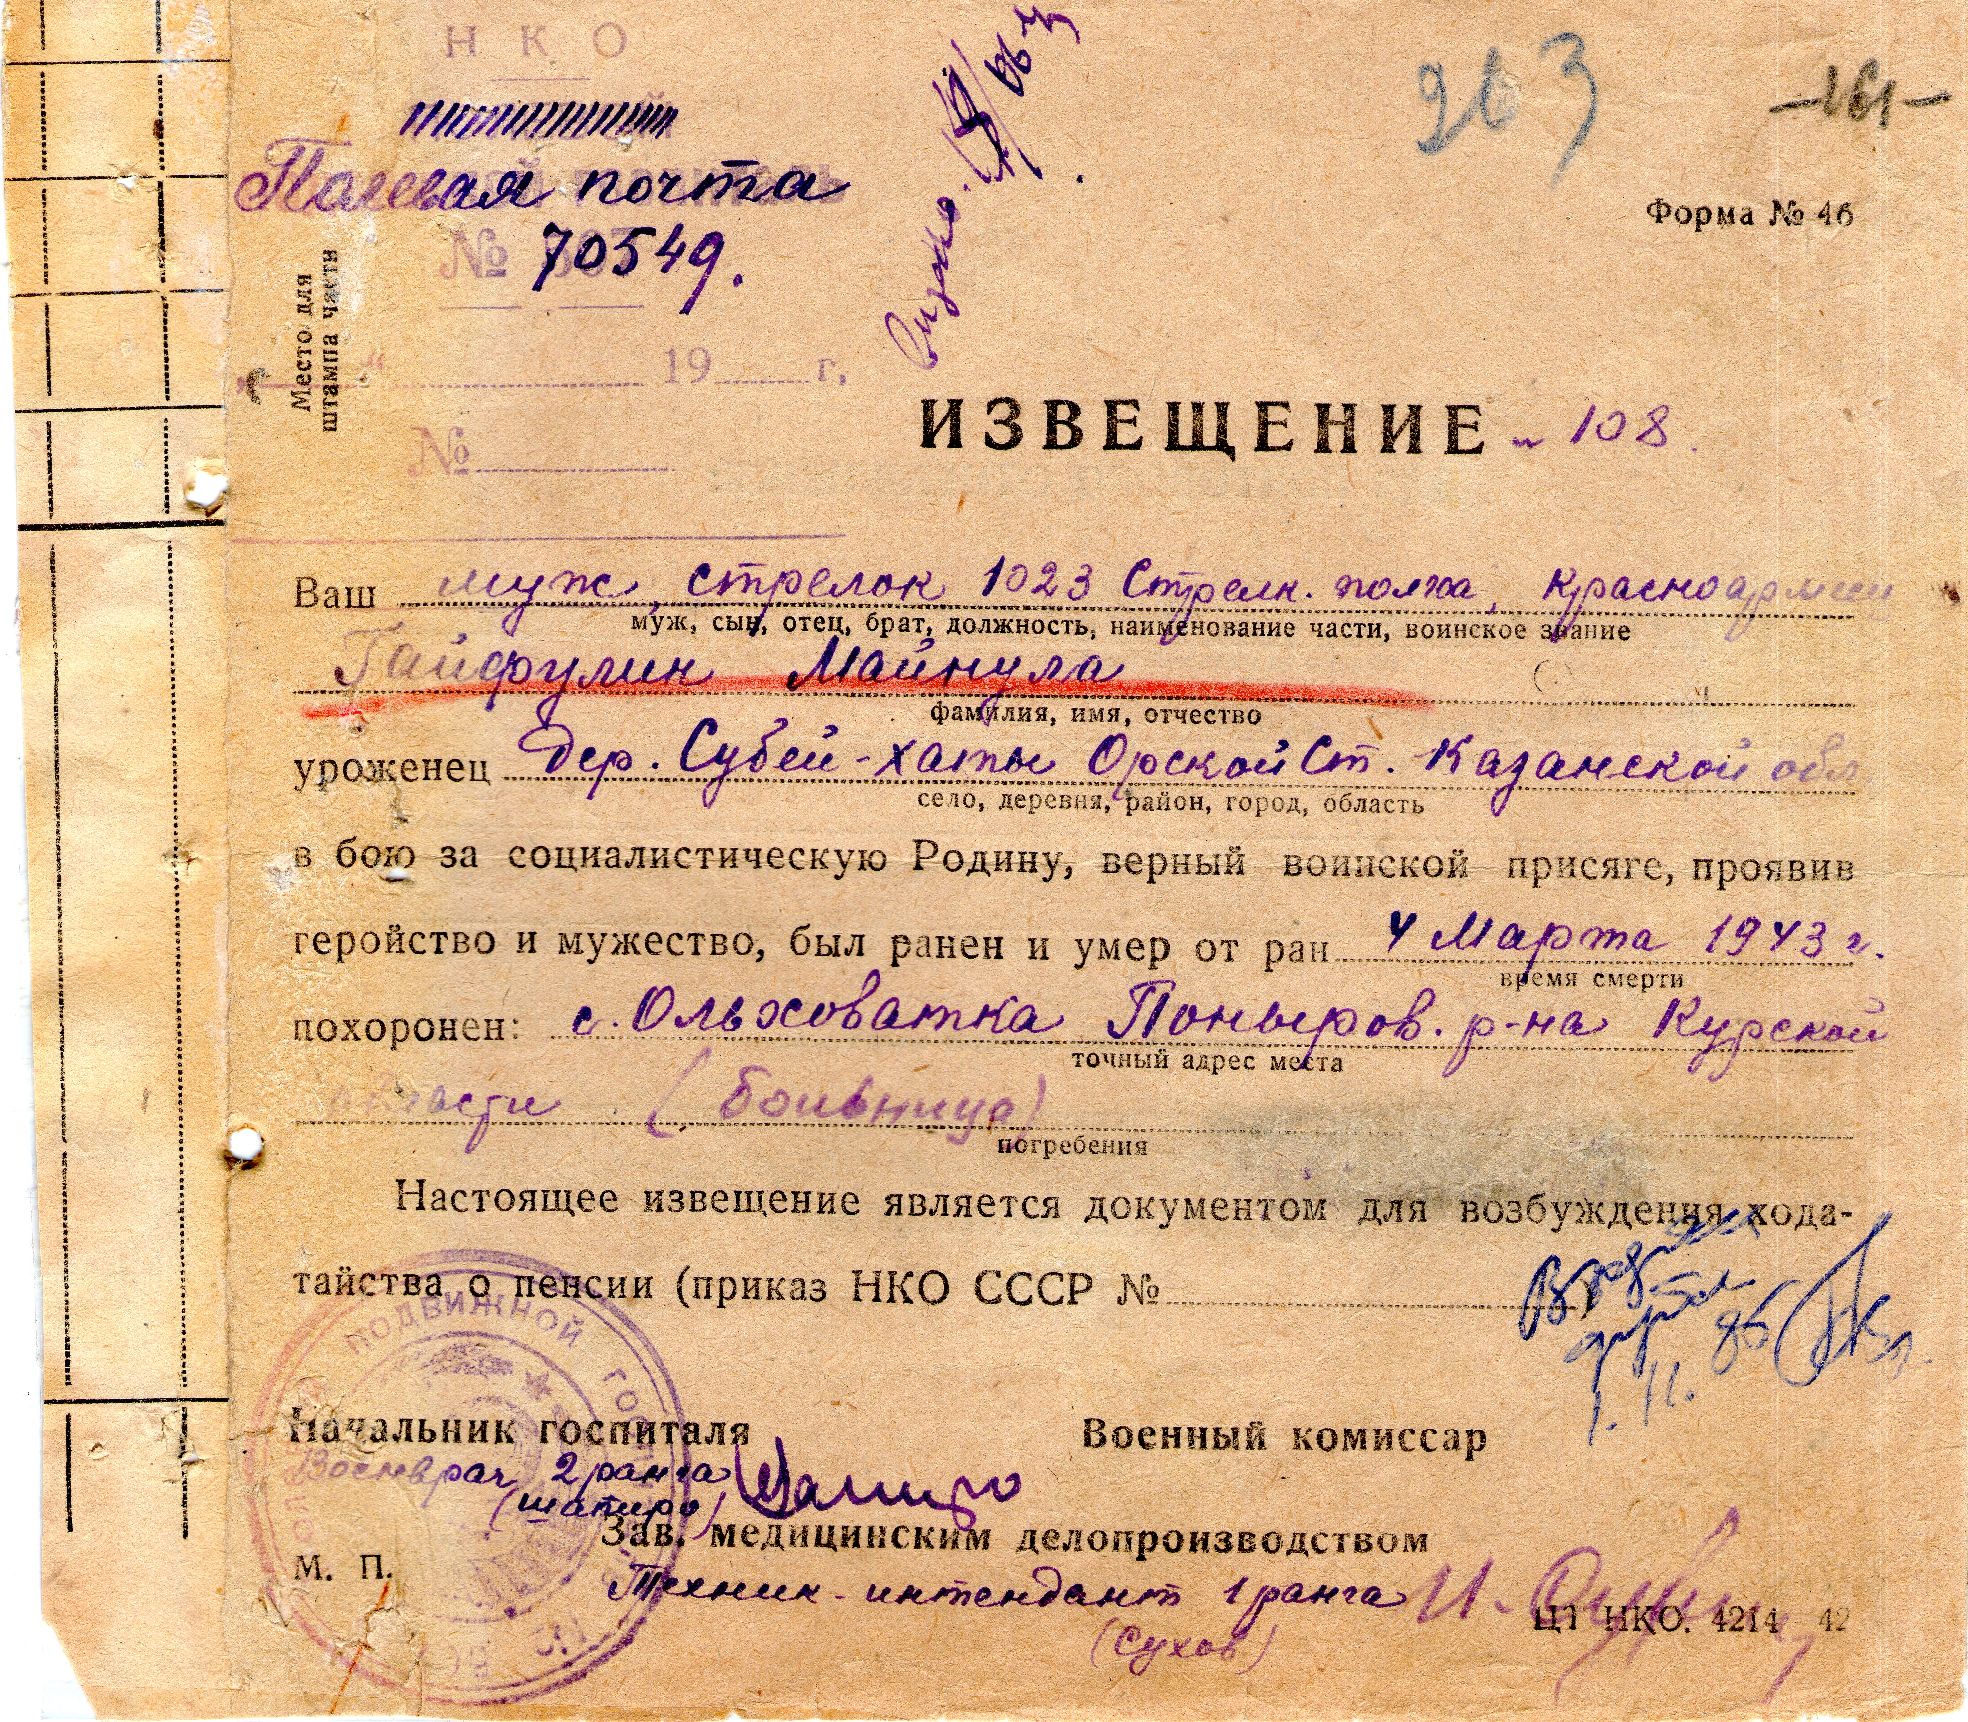 НКО
263
-161-
Полевая почта
№ 70549.
Форма № 46
Место для
штампа части
19 г.
№
ИЗВЕЩЕНИЕ 108.
Ваш муж, стрелок 1023 Стрелк. полка, красноармеец
муж, сын, отец, брат, должность, наименование части, воинское звание
Гайфулин Майнула
фамилия, имя, отчество
уроженец дер. Субей-хаты Орской Ст. Казанской обл.
село, деревня, район, город, область
в бою за социалистическую Родину, верный воинской присяге, проявив
геройство и мужество, был ранен и умер от ран 4 Марта 1943 г.
время смерти
похоронен: с. Ольховатка Поныров. р-на Курской
точный адрес места
области (больница)
погребения
Настоящее извещение является документом для возбуждения хода-
тайства о пенсии (приказ НКО СССР №
ПОДВИЖНОЙ
Начальник госпиталя
Военный комиссар
Военврач 2 ранга
(Шапиро)
Зав. медицинским делопроизводством
М. П.
Техник-интендант 1 ранга
(Сухов)
ЦТ НКО. 4214 42